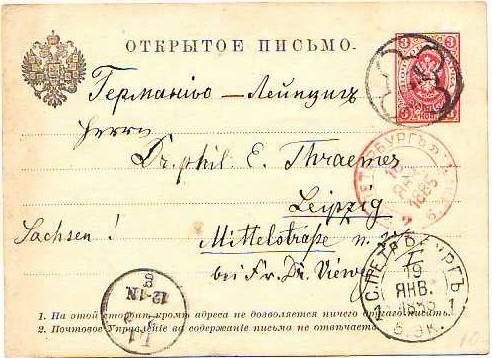 ОТКРЫТОЕ ПИСЬМО.
3 3
Германію — Лейпцигъ
Herrn
Dr. phil. E. Thraemer
Leipzig
Sachsen!
Mittelstraße n.
bei Fr. Dr. Viewe
ПЕТЕРБУРГЪ
ЯНВ
1885
2
С. ПЕТЕРБУРГЪ
I
19
ЯНВ.
1885
1
12-1N
1. На этой сторонѣ, кромѣ адреса не дозволяется ничего другаго писать.
2. Почтовое Управленіе за содержаніе письма не отвѣчаетъ.